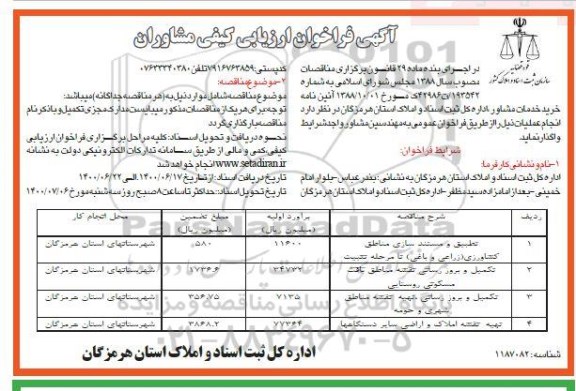 آگهی فراخوان ارزیابی کیفی مشاوران
قوه قضائیه
سازمان ثبت اسناد و املاک کشور
در اجرای بند ماده ۲۹ قانون برگزاری مناقصات
مصوب سال ۱۳۸۸ مجلس شورای اسلامی به شماره
۱۹۳۵۴۲/ت۴۲۹۸۶ک مورخ ۱۳۸۸/۱۰/۰۱ آئین نامه
خرید خدمات مشاور، اداره کل ثبت اسناد و املاک استان هرمزگان در نظر دارد
انجام عملیات ذیل را از طریق فراخوان عمومی به مهندسین مشاور واجد شرایط
واگذار نماید.
شرایط فراخوان:
۱-نام و نشانی کارفرما:
اداره کل ثبت اسناد و املاک استان هرمزگان به نشانی: بندرعباس-بلوار امام
خمینی-بعد از امامزاده سید مظفر-اداره کل ثبت اسناد و املاک استان هرمزگان
کدپستی:۷۹۱۶۷۶۳۸۵۹تلفن:۰۷۶۳۳۳۴۰۳۸۰
۲-موضوع مناقصه:
موضوع مناقصه شامل موارد ذیل به(هر مناقصه جداگانه)میباشد:
توجه:برای هریک از مناقصات مذکور میبایست مدارک مجزی تکمیل و با ذکر نام
مناقصه بارگذاری گردد
نحوه دریافت و تحویل اسناد: کلیه مراحل برگزاری فراخوان ارزیابی
کیفی کمی و مالی از طریق سامانه تدارکات الکترونیکی دولت به نشانه
www.setadiran.ir انجام خواهد شد
تاریخ دریافت اسناد: از تاریخ ۱۴۰۰/۰۶/۱۷ الی ۱۴۰۰/۰۶/۲۲
تاریخ تحویل اسناد: حداکثر تا ساعت ۸صبح روز سه شنبه مورخ ۱۴۰۰/۰۷/۰۶
ردیف شرح مناقصه برآورد اولیه (میلیون ریال) مبلغ تضمین (میلیون ریال) محل انجام کار
۱ تطبیق و مستند سازی مناطق کشاورزی(زراعی و باغی) تا مرحله تثبیت ۱۱۶۰۰ ۵۸۰ شهرستانهای استان هرمزگان
۲ تکمیل و بروز رسانی نقشه مناطق بافت مسکونی روستایی ۳۴۷۳۲ ۱۷۳۶.۶ شهرستانهای استان هرمزگان
۳ تکمیل و بروز رسانی تهیه نقشه مناطق شهری و حومه ۷۱۳۵ ۳۵۶.۷۵ شهرستانهای استان هرمزگان
۴ تهیه نقشه املاک و اراضی سایر دستگاهها ۷۷۳۶۴ ۳۸۶۸.۲ شهرستانهای استان هرمزگان
اداره کل ثبت اسناد و املاک استان هرمزگان
شناسه: ۱۱۸۷۰۸۲
ParsNamadData
پایگاه اطلاع رسانی مناقصه و مزایده
۰۲۱-۸۸۳۴۹۶۷۰-۵